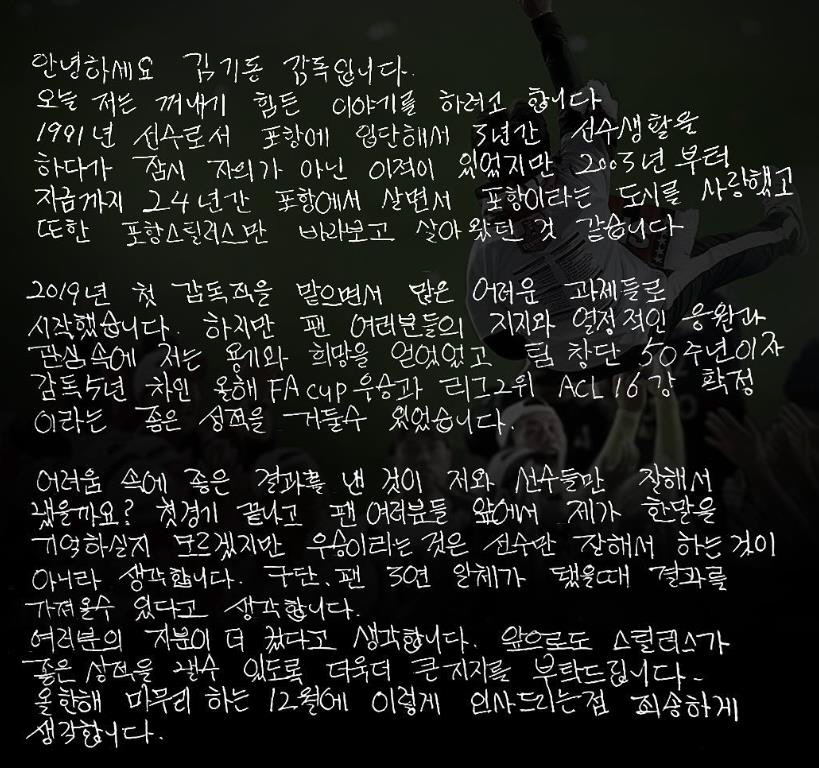 안녕하세요 김기동 감독입니다.
오늘 저는 꺼내기 힘든 이야기를 하려고 합니다
1991년 선수로서 포항에 입단해서 3년간 선수생활을
하다가 잠시 자의가 아닌 이적이 있었지만 2003년부터
지금까지 24년간 포항에서 살면서 포항이라는 도시를 사랑했고
또한 포항스틸러스만 바라보고 살아왔던 것 같습니다

2019년 첫 감독직을 맡으면서 많은 어려운 과제들로
시작했습니다. 하지만 팬 여러분들의 지지와 열정적인 응원과
관심속에 저는 용기와 희망을 얻었었고 팀 창단 50주년이자
감독5년 차인 올해 FA cup 우승과 리그2위 ACL 16강 확정
이라는 좋은 성적을 거둘수 있었습니다.

어려움 속에 좋은 결과를 낸 것이 저와 선수들만 잘해서
냈을까요? 첫경기 끝나고 팬여러분들 앞에서 제가 한말을
기억하실지 모르겠지만 우승이라는것은 선수만 잘해서 하는것이
아니라 생각합니다. 구단, 팬 3연 일체가 됐을때 결과를
가져올수 있다고 생각합니다.
여러분의 지분이 더 컸다고 생각합니다. 앞으로도 스틸러스가
좋은 성적을 낼수 있도록 더욱더 큰지지를 부탁드립니다.
올한해 마무리 하는 12월에 이렇게 인사드리는점 죄송하게
생각합니다.